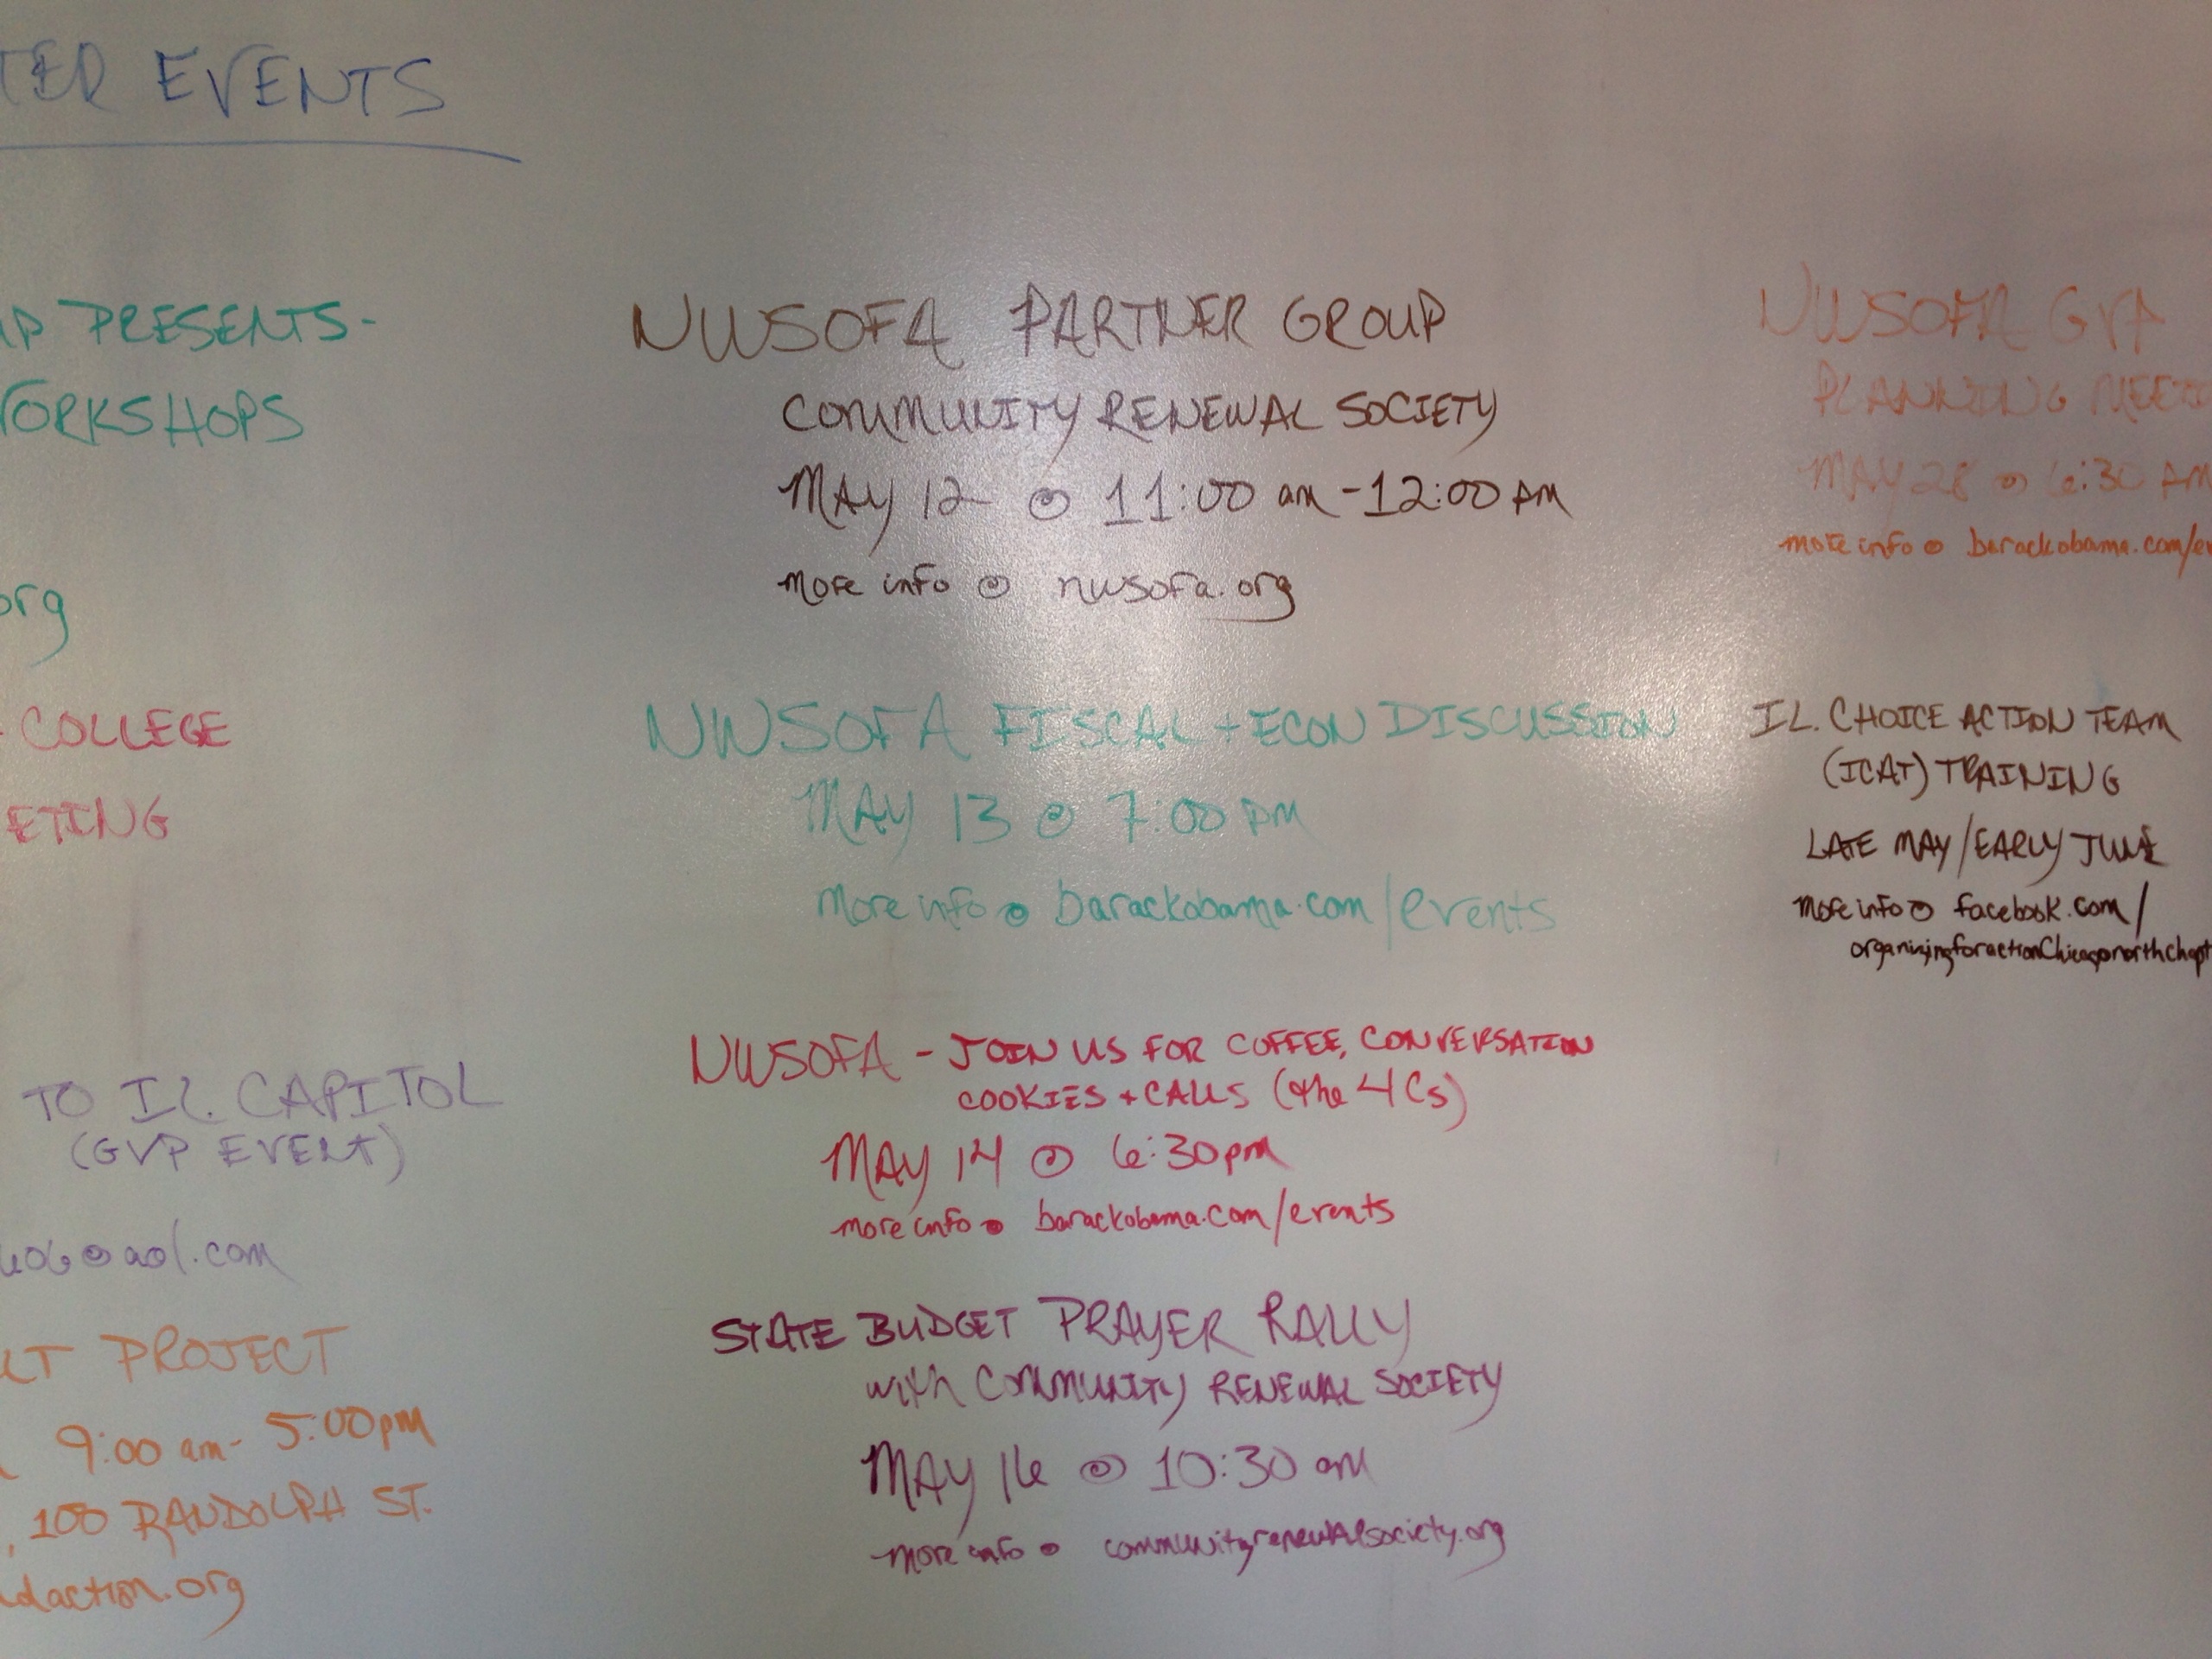 TER EVENTS
UP PRESENTS-
WORKSHOPS
org
- COLLEGE
ETING
TO IL. CAPITOL
(GVP EVENT)
606@aol.com
LT PROJECT
9:00 am - 5:00pm
, 100 RANDOLPH ST.
daction.org
NWSOFA PARTNER GROUP
COMMUNITY RENEWAL SOCIETY
MAY 12 @ 11:00 am - 12:00 pm
more info @ nwsofa.org
NWSOFA FISCAL + ECON DISCUSSION
MAY 13 @ 7:00 pm
more info @ barackobama.com/events
NWSOFA - JOIN US FOR COFFEE, CONVERSATION
COOKIES + CALLS (the 4 Cs)
MAY 14 @ 6:30pm
more info @ barackobama.com/events
STATE BUDGET PRAYER RALLY
with COMMUNITY RENEWAL SOCIETY
MAY 16 @ 10:30 am
more info @ communityrenewalsociety.org
NWSOFA GVP
PLANNING MEETI
MAY 28 @ 6:30 PM
more info @ barackobama.com/ev
IL. CHOICE ACTION TEAM
(ICAT) TRAINING
LATE MAY/EARLY JUNE
more info @ facebook.com/
organizingforactionChicagonorthchapt